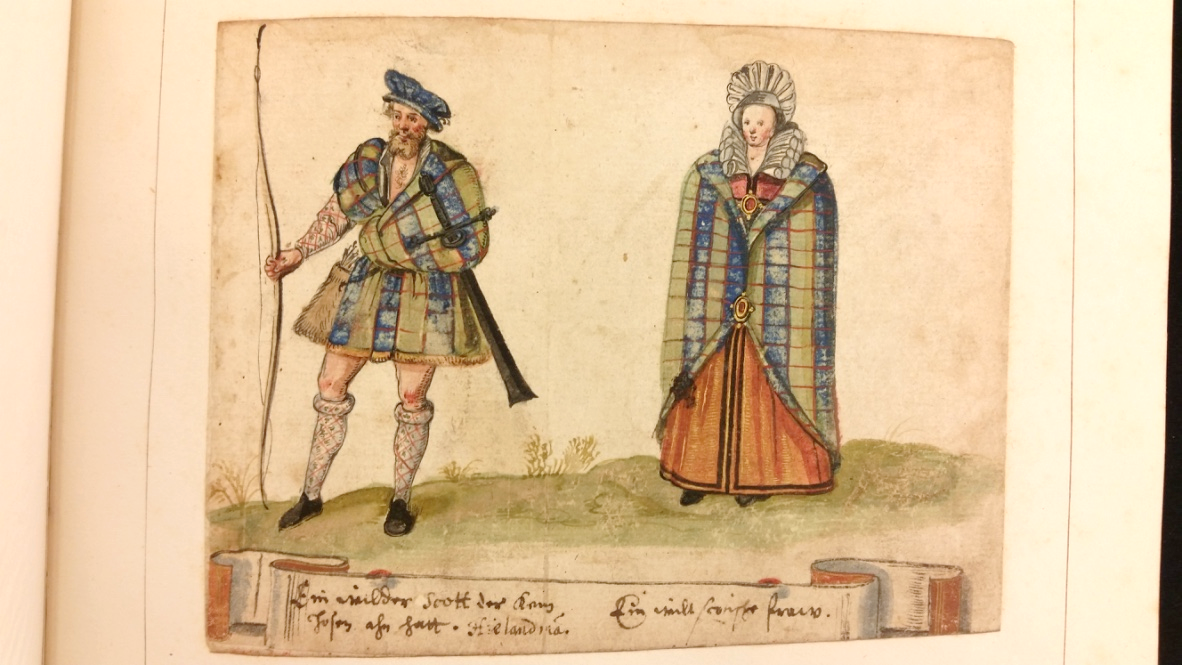 Ein wilder Scott der kein
hosen ahn hatt. Hielandmā.
Ein wilt scotishe fraw.